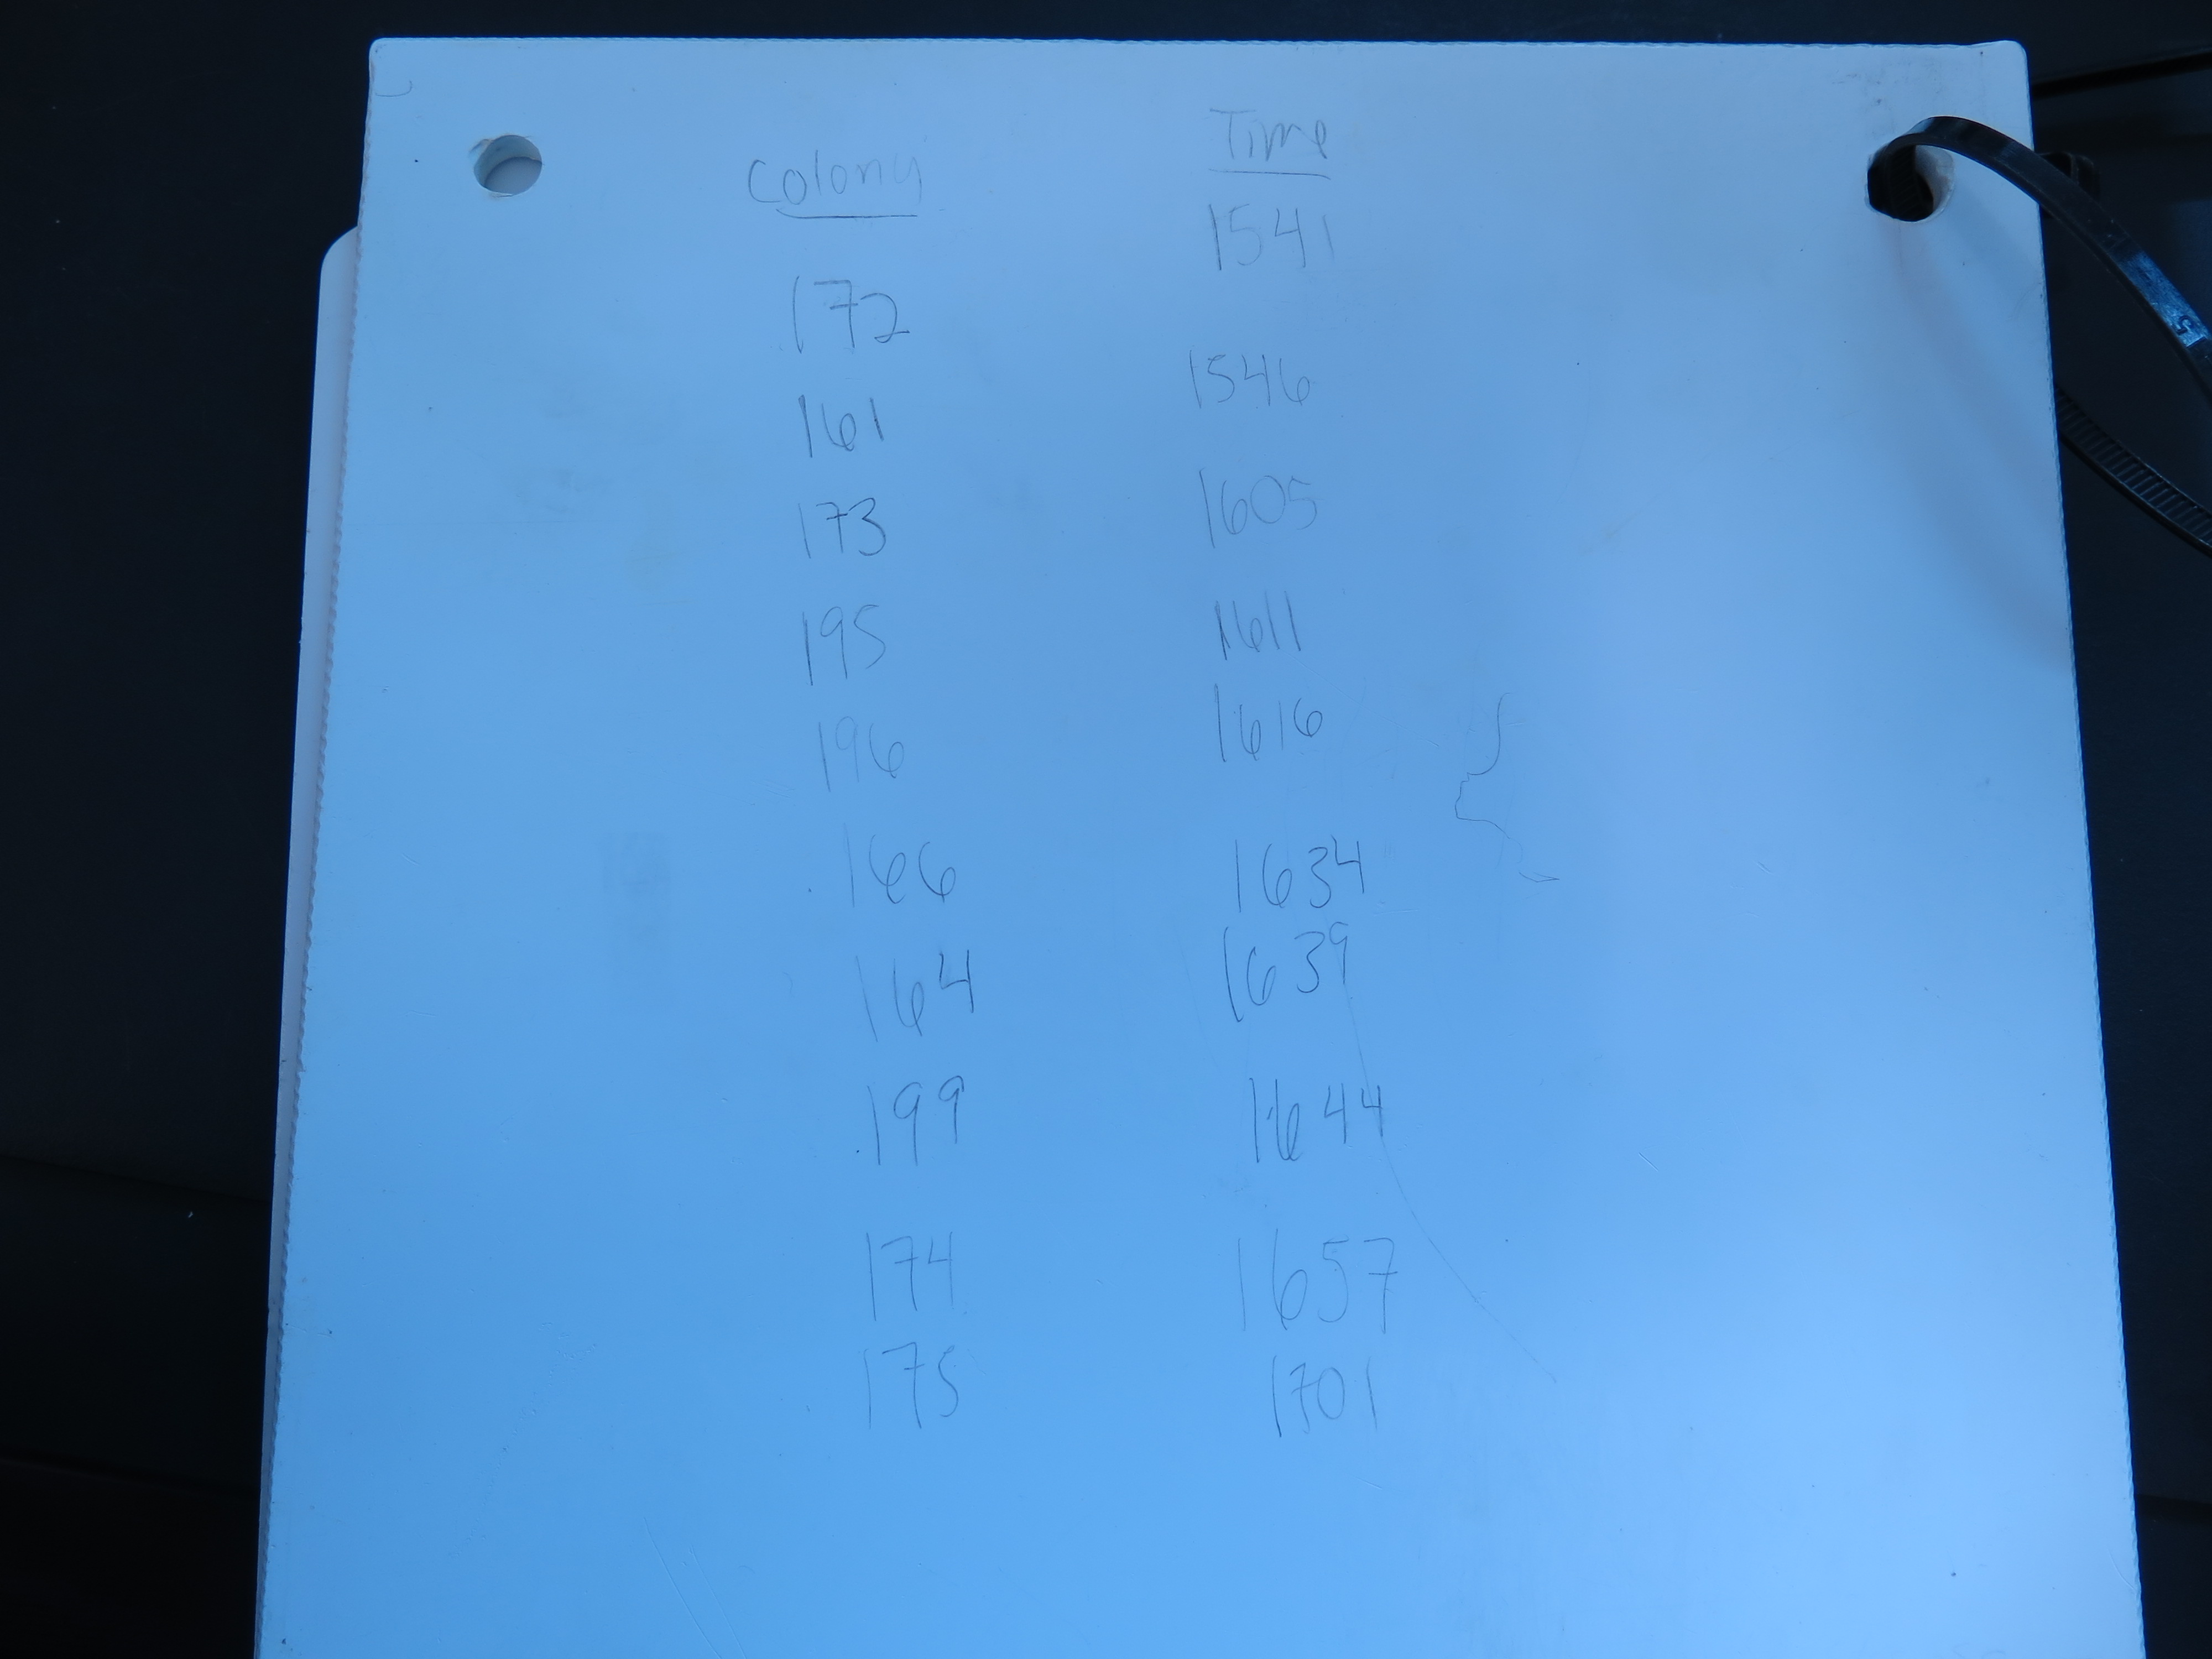 Colony Time
172 1541
161 1546
173 1605
195 1611
196 1616
166 1634
164 1639
199 1644
174 1657
175 1701